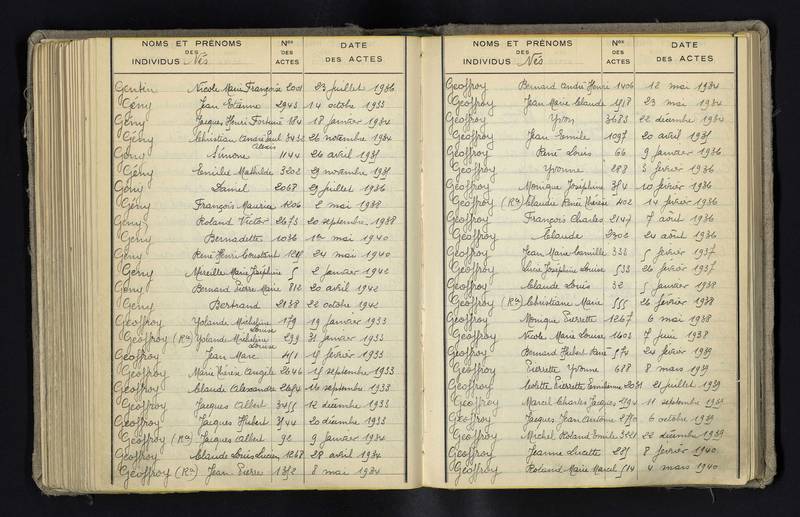 NOMS ET PRÉNOMS
DES
INDIVIDUS Nés
Nos
DES
ACTES
DATE
DES ACTES
Gentin Nicole Marie Françoise 2001 23 juillet 1936
Gény Jean Etienne 2943 14 octobre 1933
Gény Jacques Henri Fortuné 184 18 janvier 1934
Gény Christian André Paul 3432 26 novembre 1934
Alexis
Gény Simone 1144 26 avril 1935
Gény Emilie Mathilde 3202 29 novembre 1935
Gény Daniel 2068 29 juillet 1936
Gény François Maurice 1206 2 mai 1938
Gény Roland Victor 2673 20 septembre 1938
Gény Bernadette 1036 1er mai 1940
Gény René Henri Constant 24 mai 1940
Gény Mireille Marie Joséphine 5 2 janvier 1942
Gény Bernard Pierre Marie 812 20 avril 1942
Gény Bertrand 2138 22 octobre 1942
Geoffroy Yolande Micheline 179 19 janvier 1933
Louise
Geoffroy (Ron) Yolande Micheline 299 31 janvier 1933
Louise
Geoffroy Jean Marc 451 15 février 1933
Geoffroy Marie Thérèse Angèle 2646 15 septembre 1933
Geoffroy Claude Alexandre 2654 16 septembre 1933
Geoffroy Jacques Albert 3455 12 décembre 1933
Geoffroy Jacques Hubert 3544 20 décembre 1933
Geoffroy (Ron) Jacques Albert 92 9 janvier 1934
Geoffroy Claude Louis Lucien 1268 28 avril 1934
Geoffroy (Ron) Jean Pierre 1352 8 mai 1934
NOMS ET PRÉNOMS
DES
INDIVIDUS Nés
Nos
DES
ACTES
DATE
DES ACTES
Geoffroy Bernard André Henri 1406 12 mai 1934
Geoffroy Jean Marie Claude 1518 23 mai 1934
Geoffroy Yvon 3683 22 décembre 1934
Geoffroy Jean Emile 1097 20 avril 1935
Geoffroy René Louis 66 9 janvier 1936
Geoffroy Yvonne 288 3 février 1936
Geoffroy Monique Joséphine 354 10 février 1936
Geoffroy (Ron) Claudie Renée Thérèse 402 14 février 1936
Geoffroy François Charles 2147 7 août 1936
Geoffroy Claude 2302 24 août 1936
Geoffroy Jean Marie Camille 332 5 février 1937
Geoffroy Lucie Joséphine Louise 533 26 février 1937
Geoffroy Claude Louis 32 5 janvier 1938
Geoffroy (Ron) Christiane Marie 555 26 février 1938
Geoffroy Monique Pierrette 1267 6 mai 1938
Geoffroy Nicole Marie Louise 1603 7 juin 1938
Geoffroy Bernard Hubert René 574 24 février 1939
Geoffroy Pierrette Yvonne 688 8 mars 1939
Geoffroy Colette Pierrette Emilienne 2031 21 juillet 1939
Geoffroy Marcel Charles Jacques 2594 11 septembre 1939
Geoffroy Jacques Jean Antoine 2750 6 octobre 1939
Geoffroy Michel Roland Emile 3221 22 décembre 1939
Geoffroy Jeanne Lucette 285 8 février 1940
Geoffroy Roland Marie Marcel 514 4 mars 1940